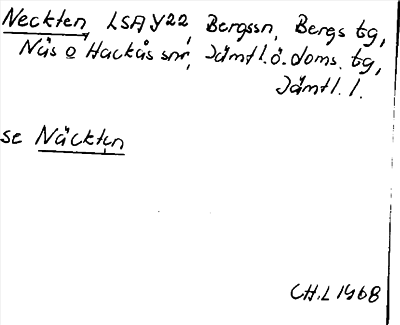 Neckten, LSA Y22, Bergssn, Bergs tg,
Näs o Hackås snr, Jämtl. ö. doms. tg,
Jämtl. l.
se Näckten
CH.L 1968